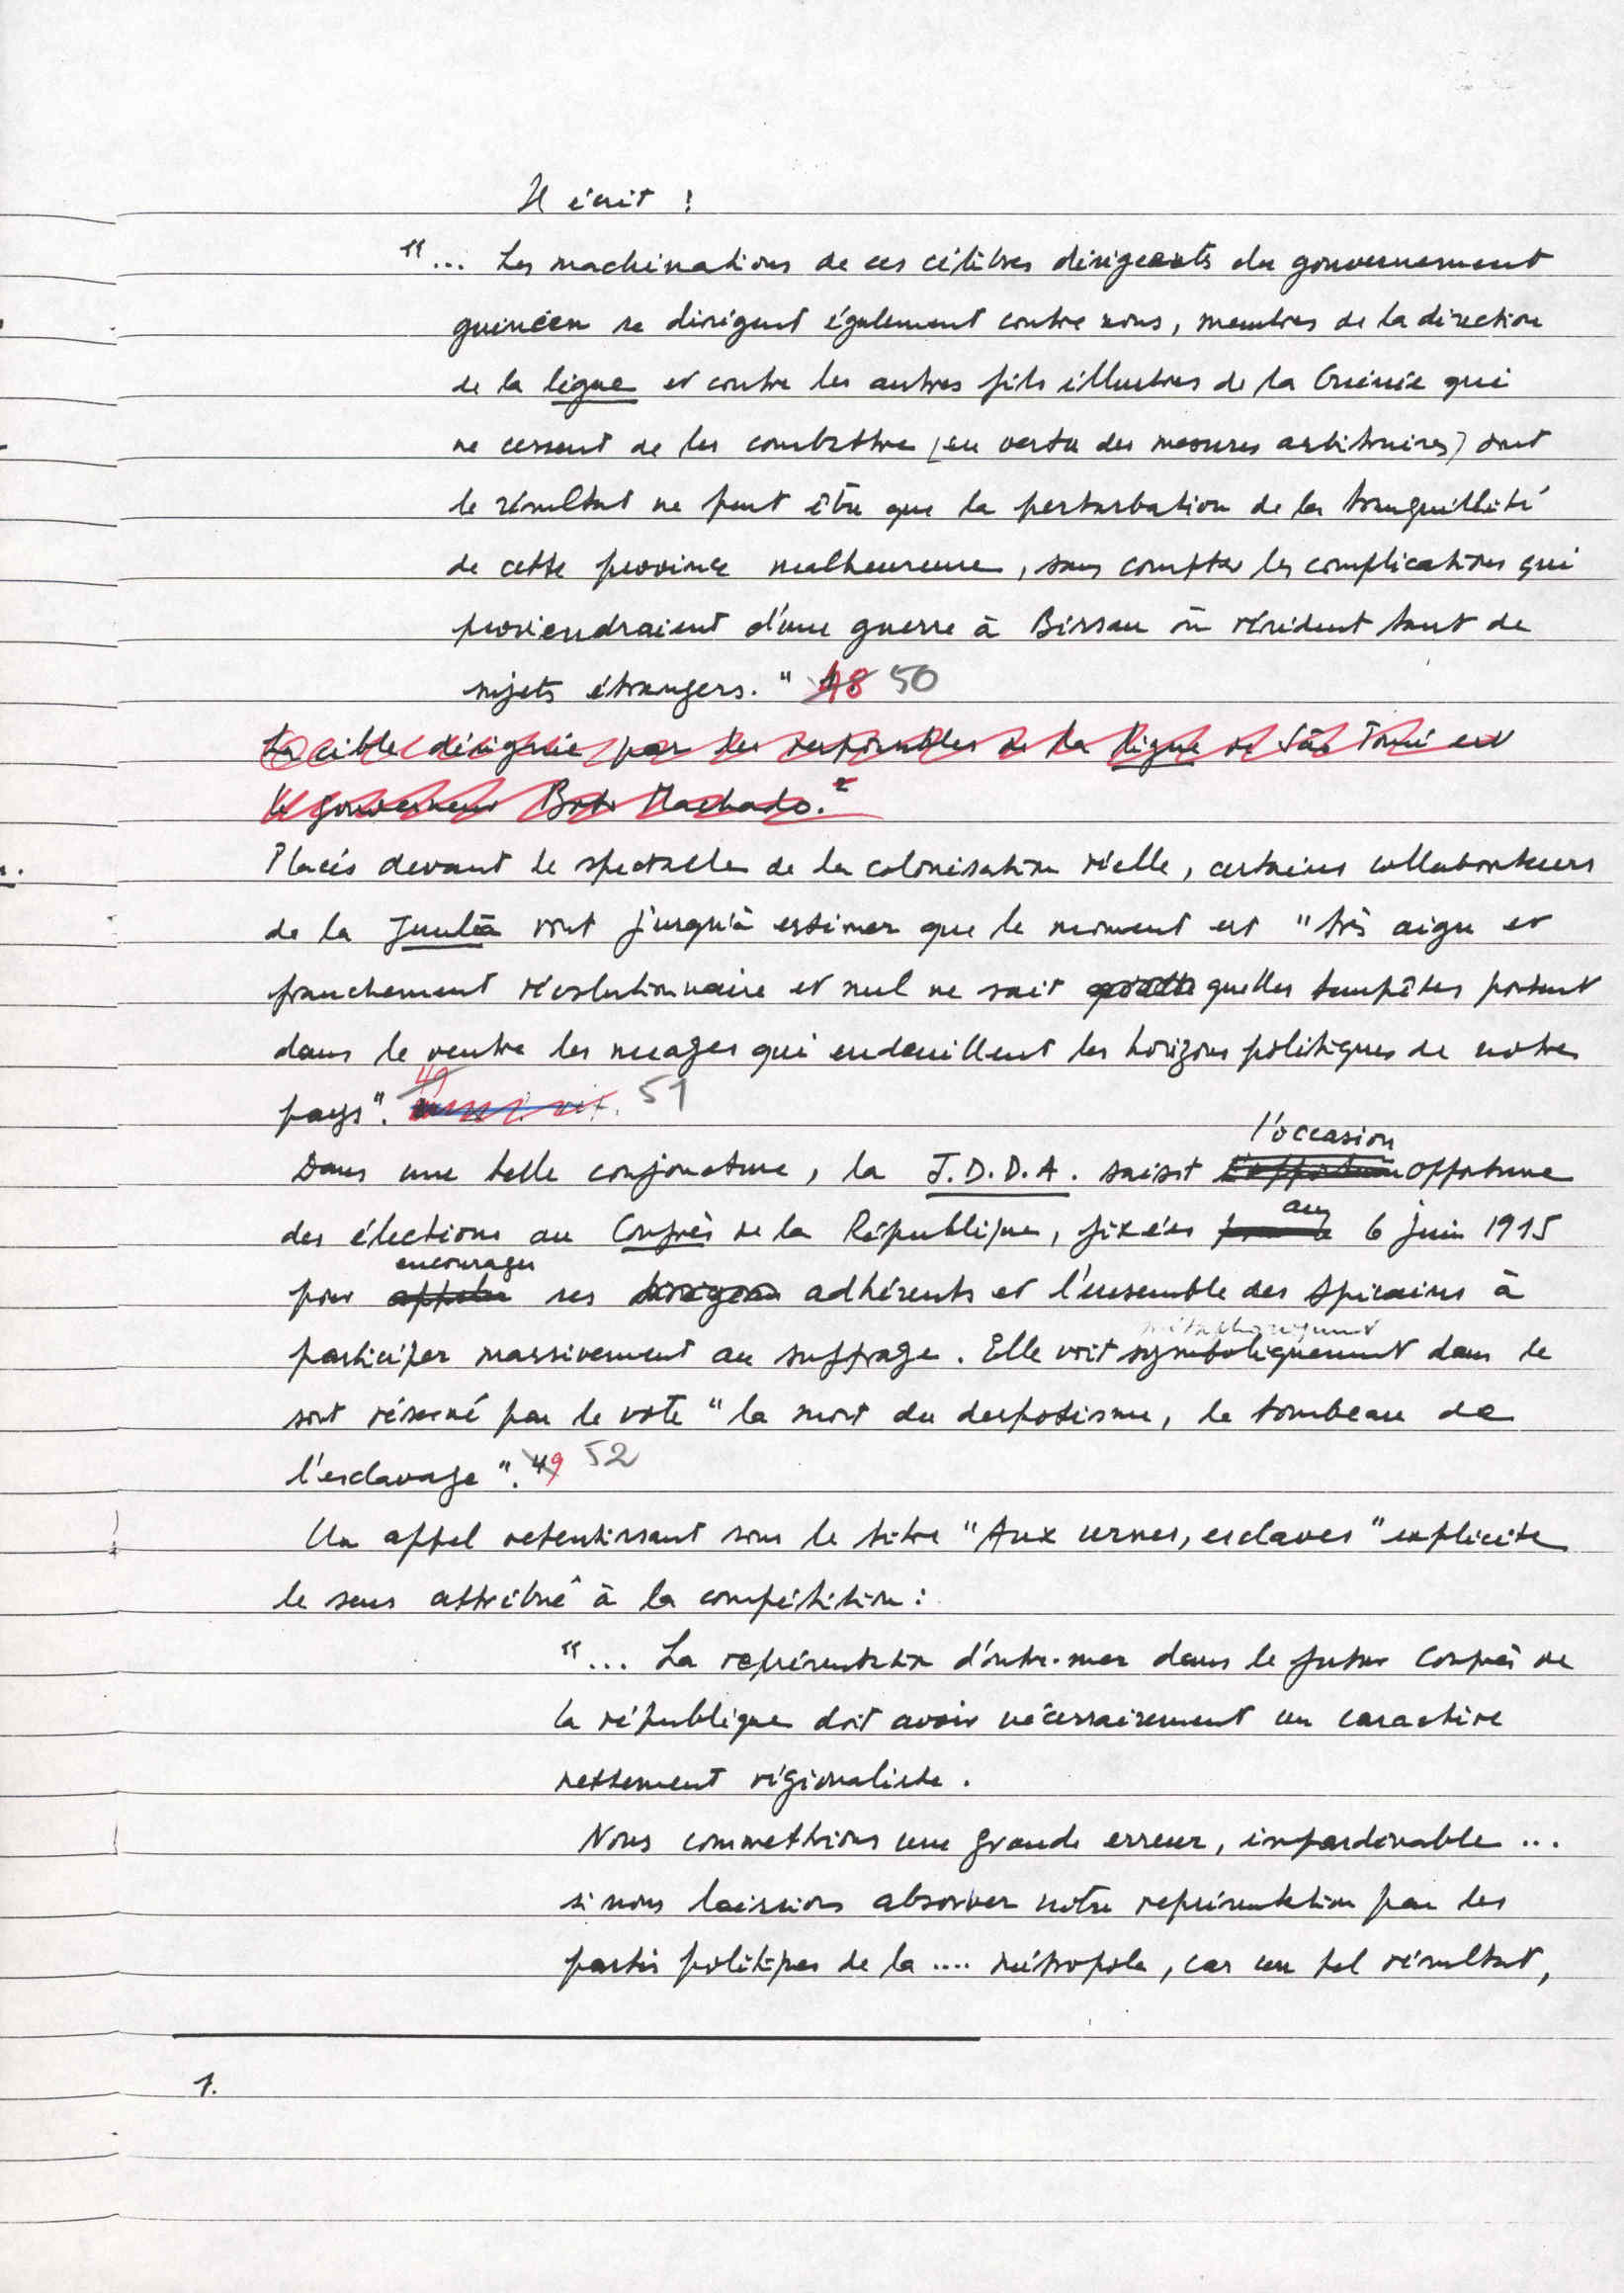 Il écrit :
"... Les machinations de ces célèbres dirigeants du gouvernement
guinéen se dirigent également contre nous, membres de la direction
de la ligue et contre les autres fils illustres de la Guinée qui
ne cessent de les combattre (en vertu des mesures arbitraires) dont
le résultat ne peut être que la perturbation de la tranquillité
de cette province malheureuse, sans compter les complications qui
proviendraient d'une guerre à Bissau où résident tant de
sujets étrangers." 48 50
La cible désignée par les responsables de la Ligue de São Tomé est
le gouverneur Machado.²
Placés devant le spectacle de la colonisation réelle, certains collaborateurs
de la Junta vont jusqu'à estimer que le moment est "très aigu et
franchement révolutionnaire et nul ne sait quelles tempêtes portent
dans le ventre les nuages qui endeuillent les horizons politiques de notre
pays". 49 51
l'occasion
Dans une telle conjoncture, la J.D.D.A. saisit opportune
des élections au Congrès de la République, fixées au 6 juin 1915
encourager
pour ses adhérents et l'ensemble des Africains à
métaphoriquement
participer massivement au suffrage. Elle voit symboliquement dans le
sort réservé par le vote "la mort du despotisme, le tombeau de
l'esclavage". 49 52
Un appel retentissant sous le titre "Aux urnes, esclaves" explicite
le sens attribué à la compétition :
"... La représentation d'outre-mer dans le futur Congrès de
la république doit avoir nécessairement un caractère
nettement régionaliste.
Nous commettrions une grande erreur, impardonable ...
si nous laissions absorver notre représentation par les
partis politiques de la .... métropole, car un tel résultat,
1.